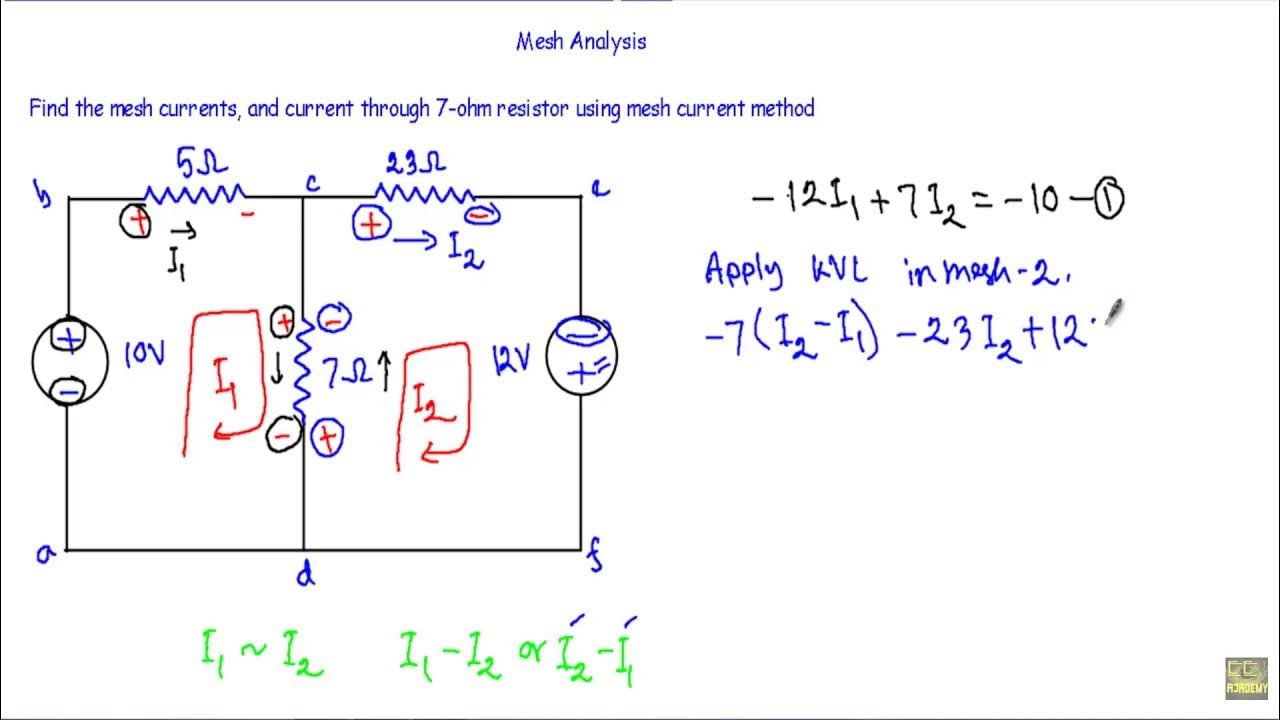 Mesh Analysis
Find the mesh currents, and current through 7-ohm resistor using mesh current method
5Ω
23Ω
b
c
e
+
-
+
-
I₁
I₂
+
-
10V
I₁
+
-
7Ω
-
+
I₂
12V
-
+
a
d
f
-12I₁ + 7I₂ = -10 - ①
Apply KVL in mesh-2.
-7(I₂ - I₁) - 23I₂ + 12
I₁ ~ I₂
I₁ - I₂ or I₂ - I₁
EE
ACADEMY